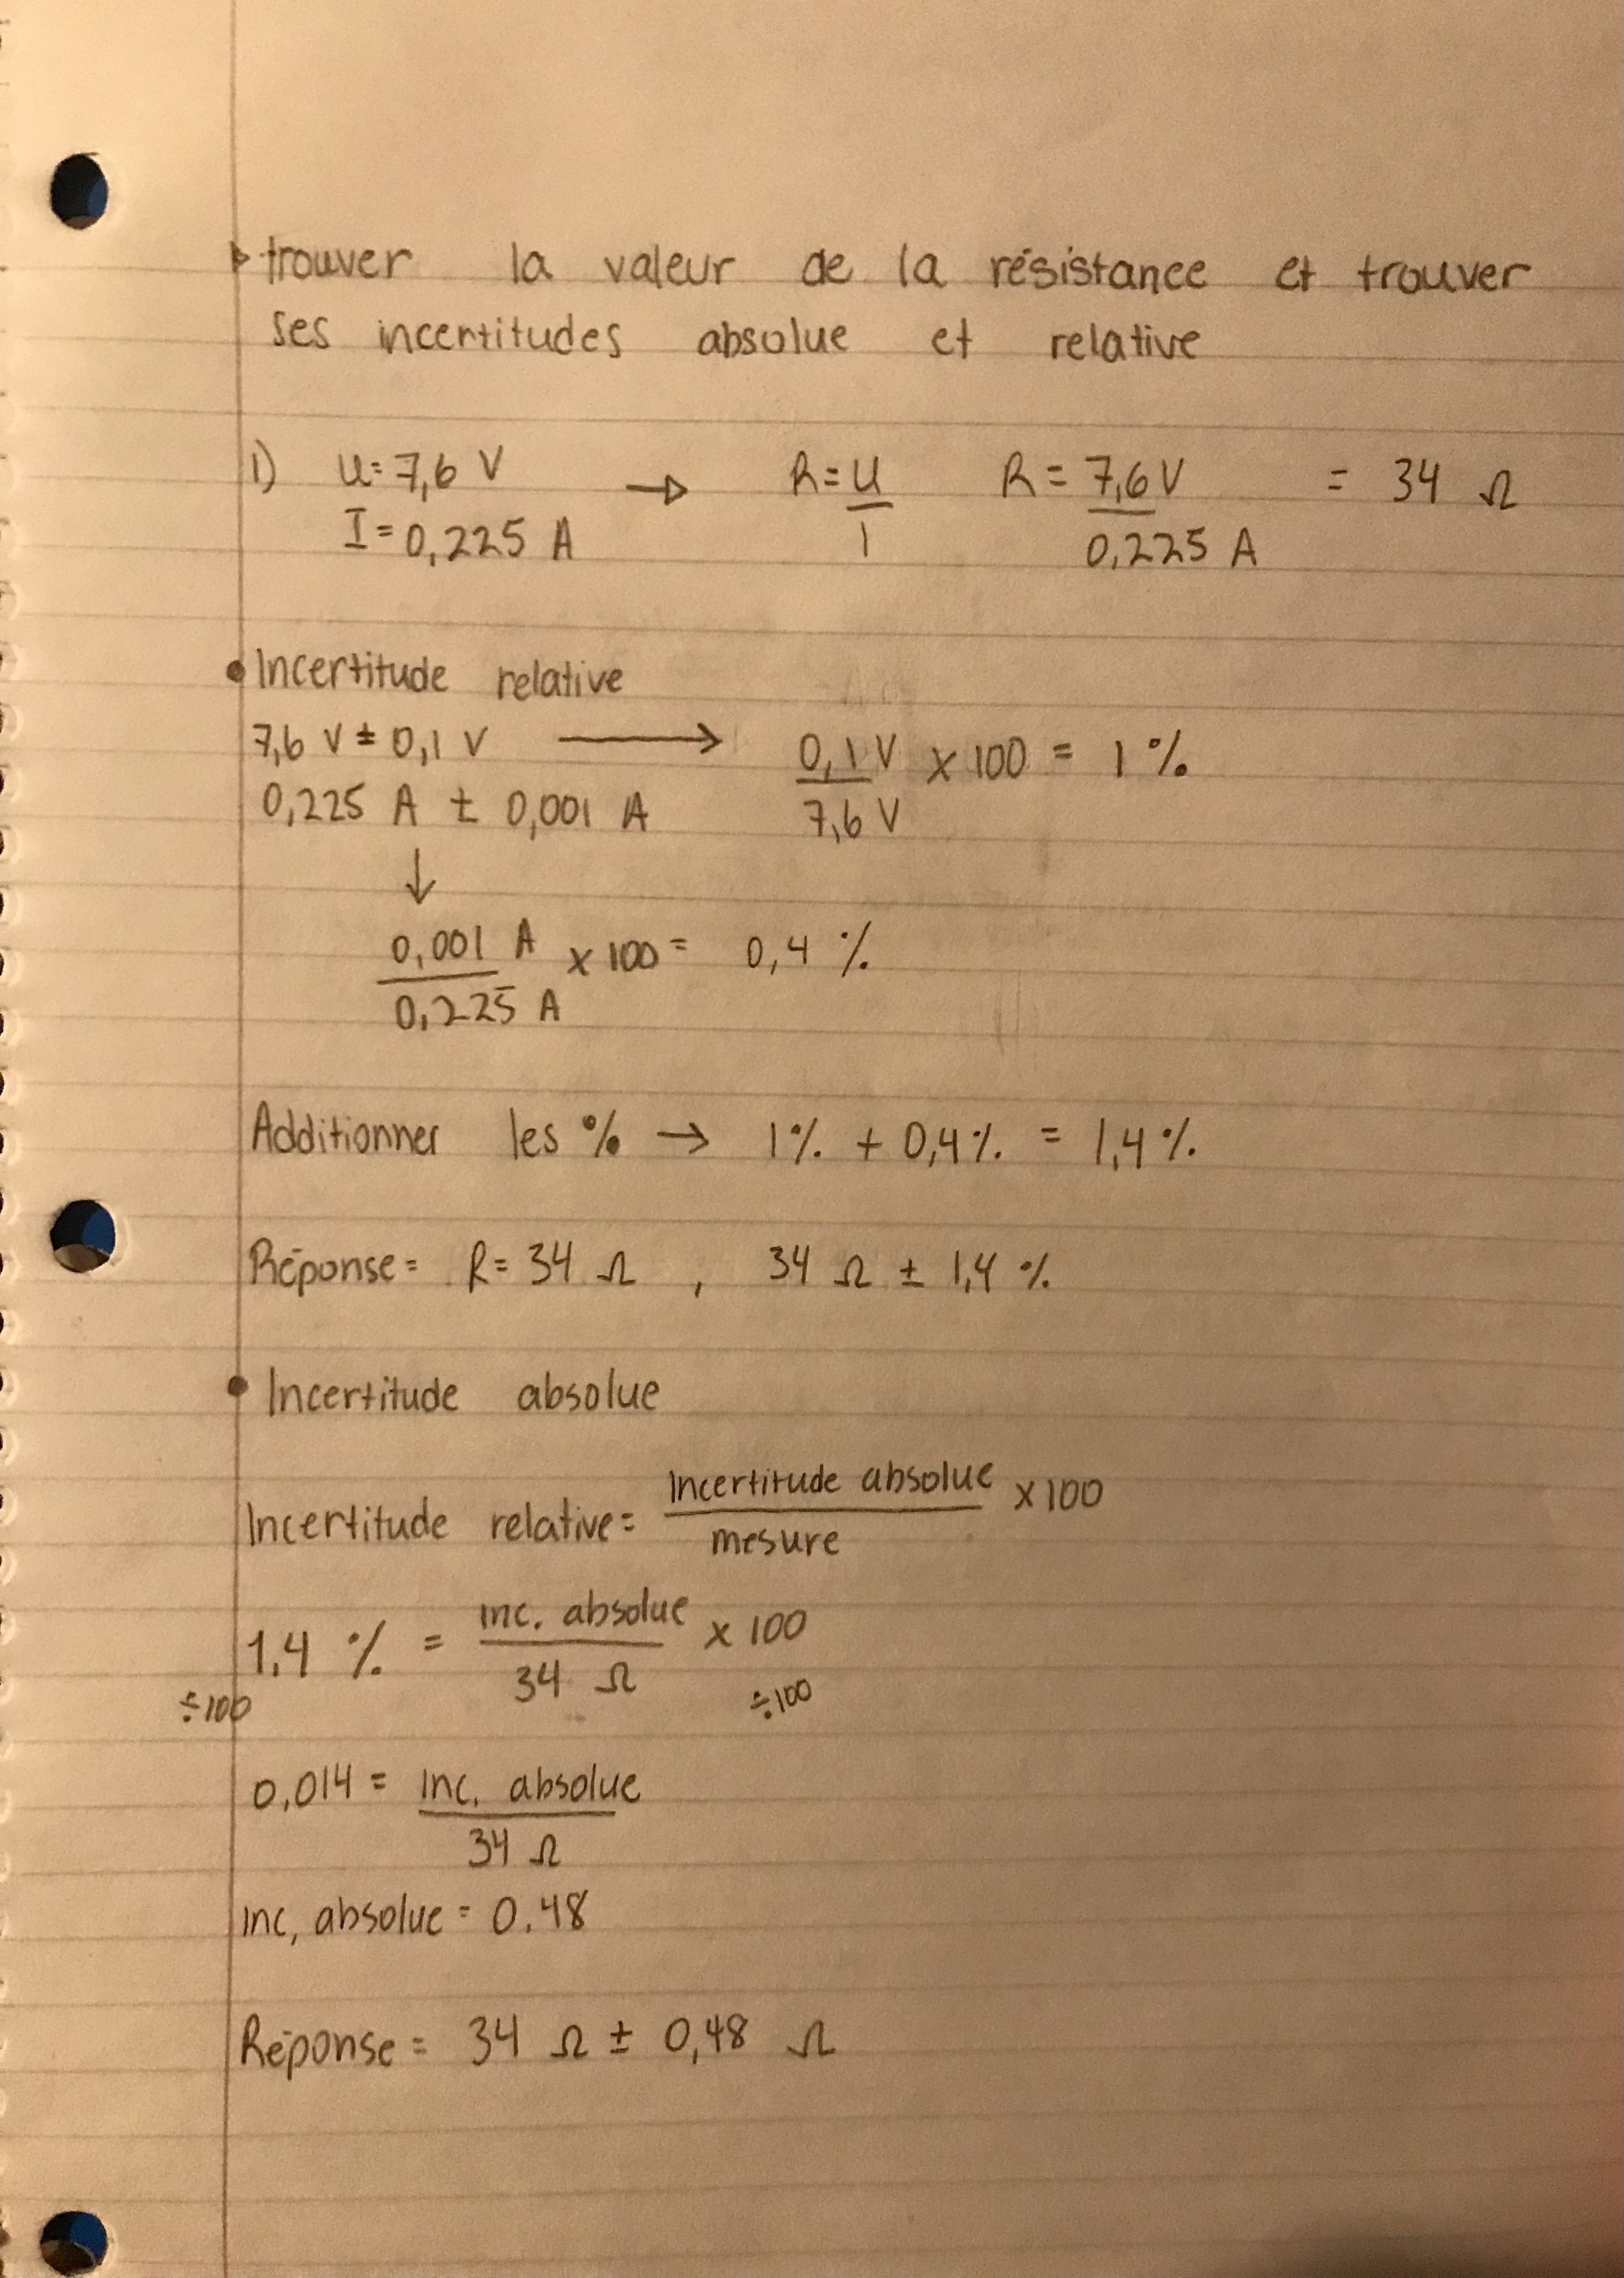 ▹ trouver la valeur de la résistance et trouver
ses incertitudes absolue et relative
1) U= 7,6 V → R= U/I R= 7,6 V/0,225 A = 34 Ω
I= 0,225 A
• Incertitude relative
7,6 V ± 0,1 V → 0,1 V/7,6 V x 100 = 1 %
0,225 A ± 0,001 A
↓
0,001 A/0,225 A x 100 = 0,4 %
Additionner les % → 1% + 0,4% = 1,4%
Réponse= R= 34 Ω , 34 Ω ± 1,4 %
• Incertitude absolue
Incertitude relative= Incertitude absolue/mesure x100
1,4 % = inc. absolue/34 Ω x 100
÷100 ÷100
0,014 = inc. absolue/34 Ω
inc, absolue = 0.48
Réponse = 34 Ω ± 0,48 Ω